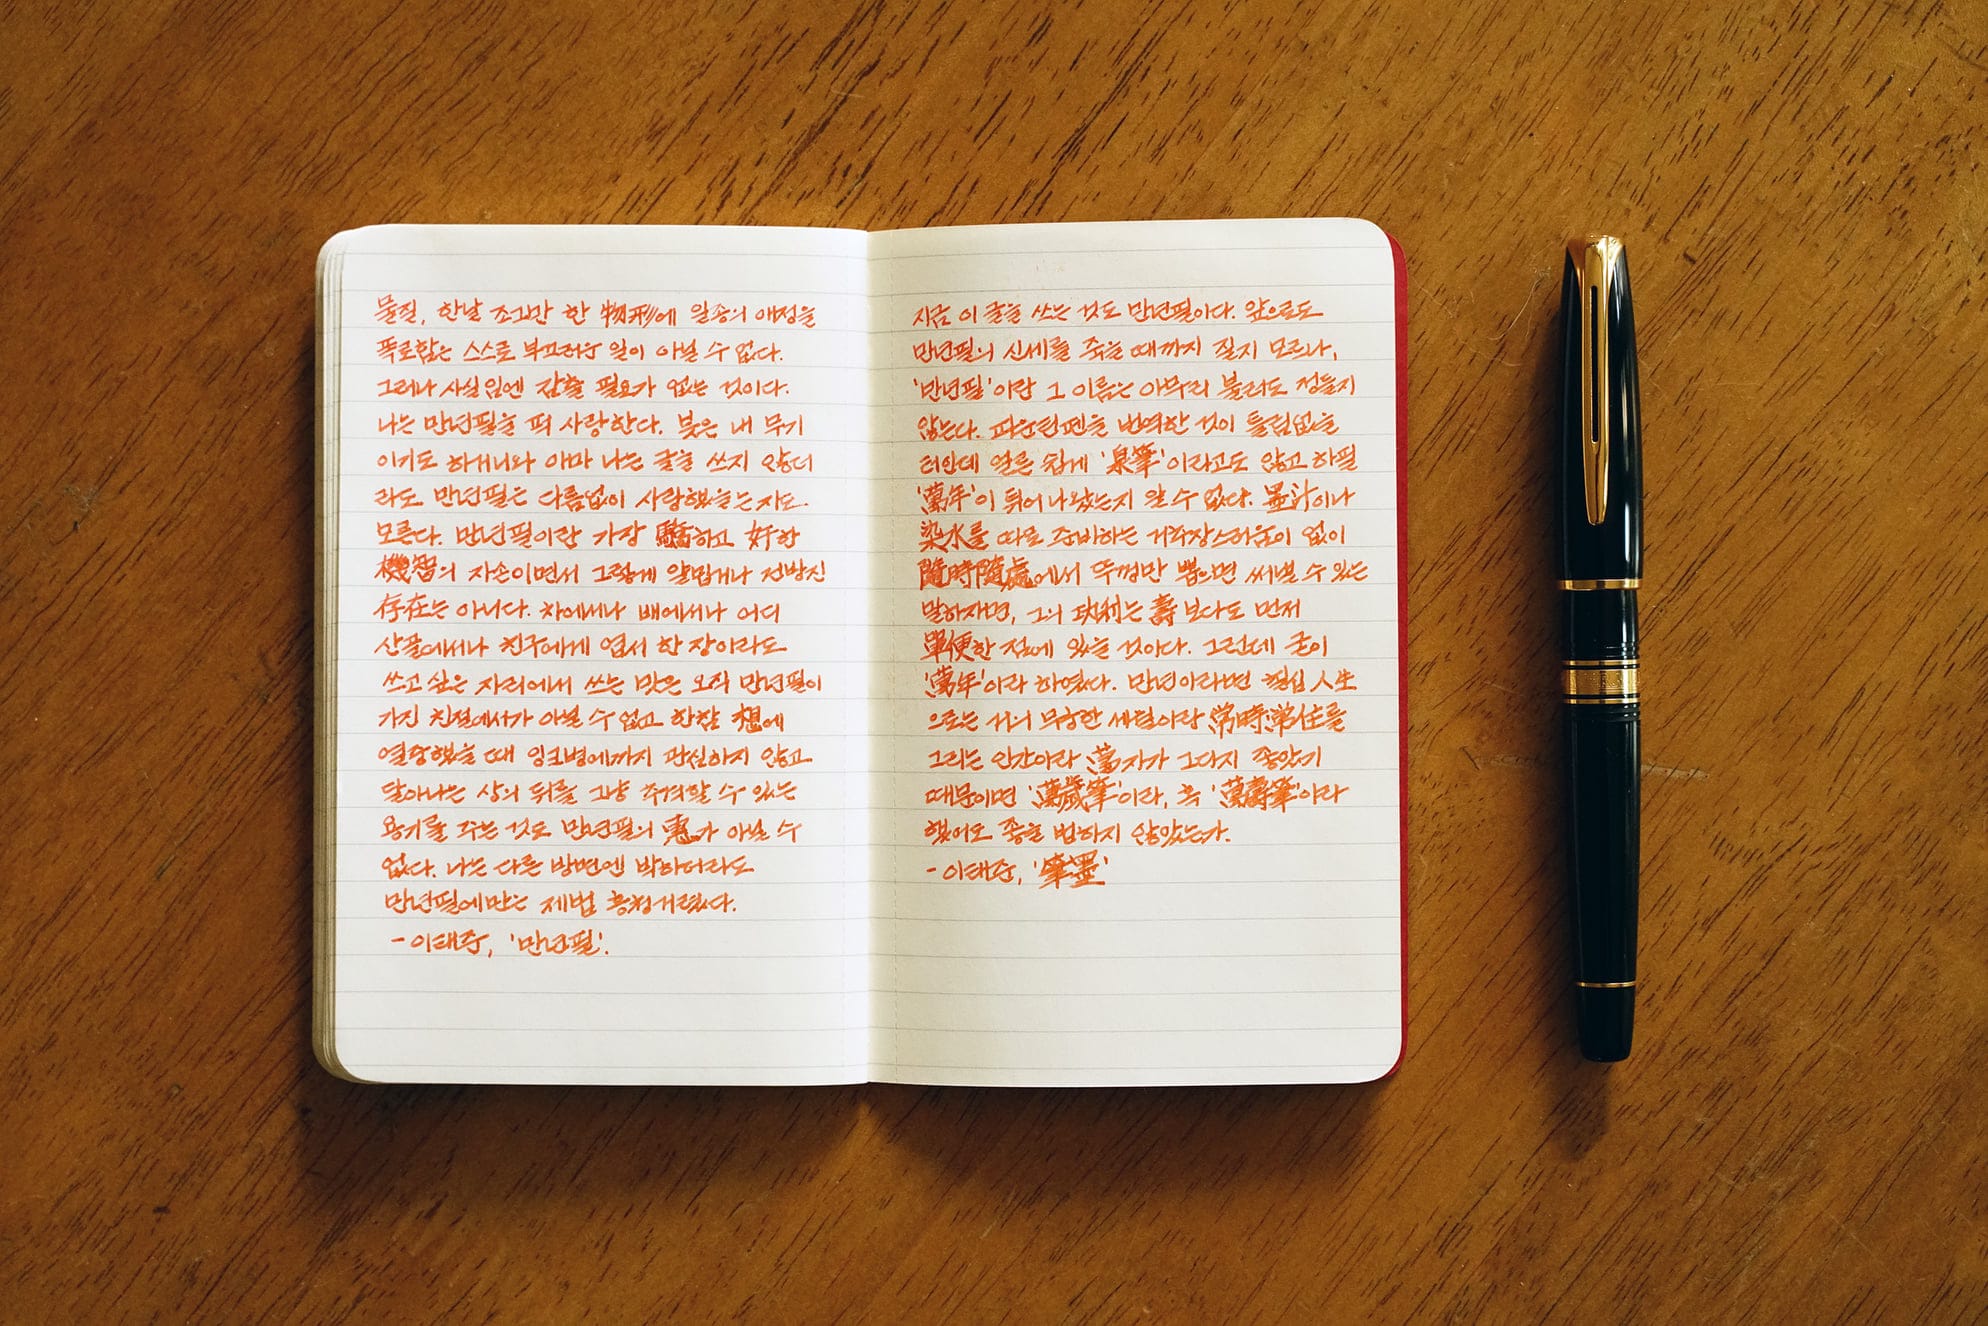 물질, 한낱 조그만 한 物形에 일종의 애정을
폭로함은 스스로 부끄러운 일이 아닐 수 없다.
그러나 사실임엔 감출 필요가 없는 것이다.
나는 만년필을 퍽 사랑한다. 붓은 내 무기
이기도 하거니와 아마 나는 글을 쓰지 않더
라도 만년필은 다름없이 사랑했을는지도
모른다. 만년필이란 가장 驕하고 奸한
機智의 자손이면서 그렇게 얄밉거나 건방진
存在는 아니다. 차에서나 배에서나 어디
산골에서나 친구에게 엽서 한 장이라도
쓰고 싶은 자리에서 쓰는 맛은 오직 만년필이
가진 친절에서가 아닐 수 없고 한참 想에
열중했을 때 잉크병에까지 관심하지 않고
달아나는 상의 뒤를 그냥 추격할 수 있는
용기를 주는 것도 만년필의 惠가 아닐 수
없다. 나는 다른 방면엔 박하더라도
만년필에만는 제법 흥청거렸다.
- 이태준, '만년필'.
지금 이 글을 쓰는 것도 만년필이다. 앞으로도
만년필의 신세를 죽을 때까지 질지 모르나,
'만년필'이란 그 이름은 아무리 불러도 정들지
않는다. 파운틴펜을 번역한 것이 틀림없을
터인데 얼른 쉽게 '泉筆'이라고도 않고 하필
'萬年'이 튀어 나왔는지 알 수 없다. 墨汁이나
染水를 따로 준비하는 거추장스러움이 없이
隨時隨處에서 뚜껑만 뽑으면 써낼 수 있는
말하자면, 그의 功利는 壽보다도 먼저
單便한 점에 있을 것이다. 그런데 굳이
'萬年'이라 하였다. 만년이라면 칠십 人生
으로는 거의 무궁한 세월이라 常時常住를
그리는 인간이라 萬자가 그다지 좋았기
때문이면 '萬歲筆'이라, 혹 '萬壽筆'이라
했어도 좋을 법하지 않았는가.
- 이태준, '筆墨'